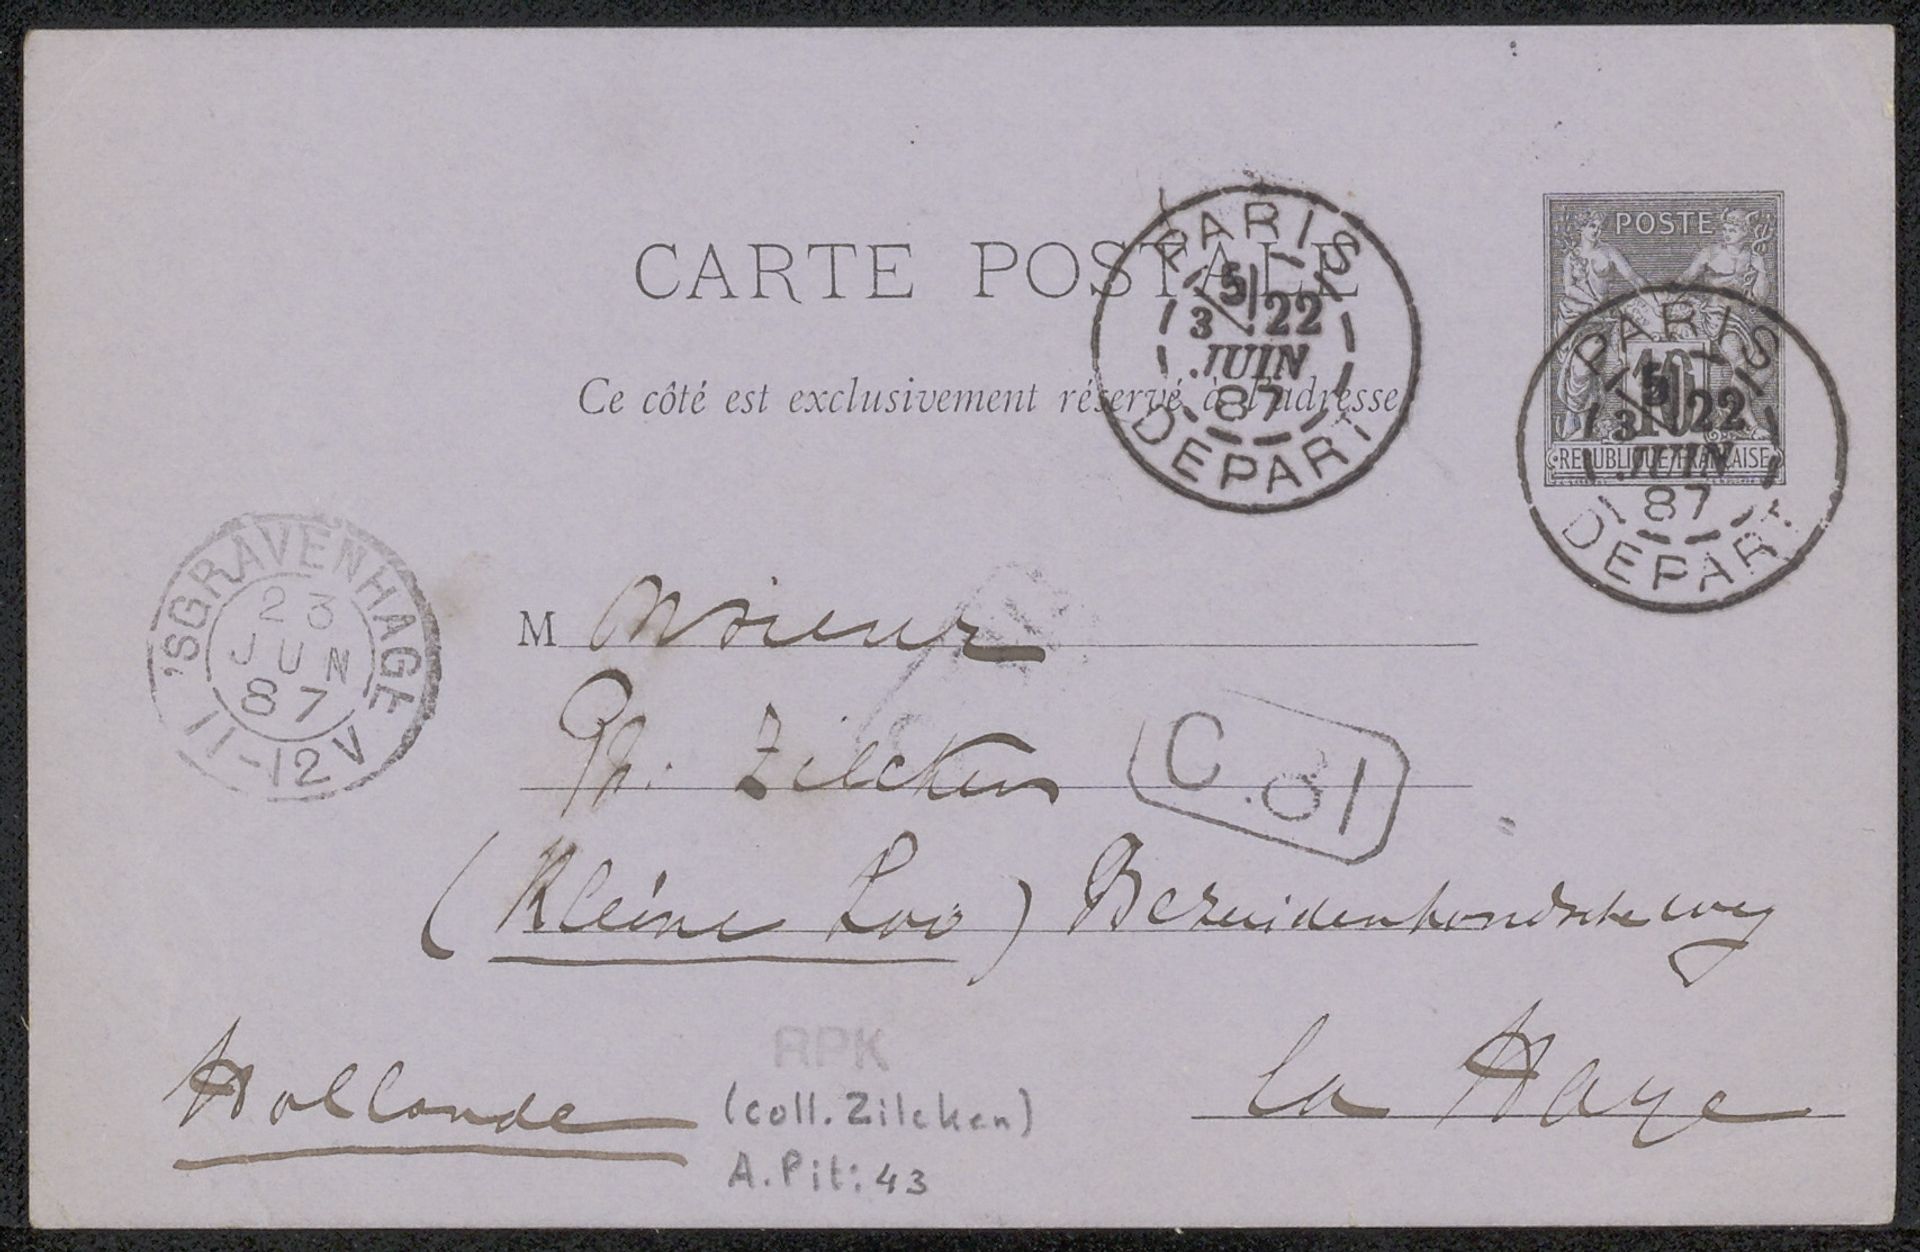 POSTE
10
REPUBLIQUE FRANÇAISE
CARTE POSTALE
Ce côté est exclusivement réservé à l'adresse
PARIS
5
3 22
JUIN
87
DEPART
PARIS
5
3 22
JUIN
87
DEPART
'SGRAVENHAGE
23
JUN
87
11-12V
Monsieur
Ph. Zilcken
C.81
(Kleine Loo) Bezuidenhoudscheweg
La Haye
Hollande
RPK
(coll. Zilcken)
A. Pit: 43